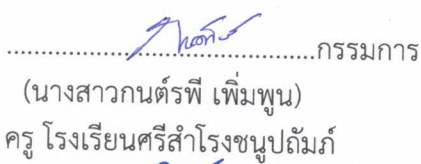 ........................................กรรมการ
(นางสาวกนต์รพี เพิ่มพูน)
ครู โรงเรียนศรีสำโรงชนูปถัมภ์